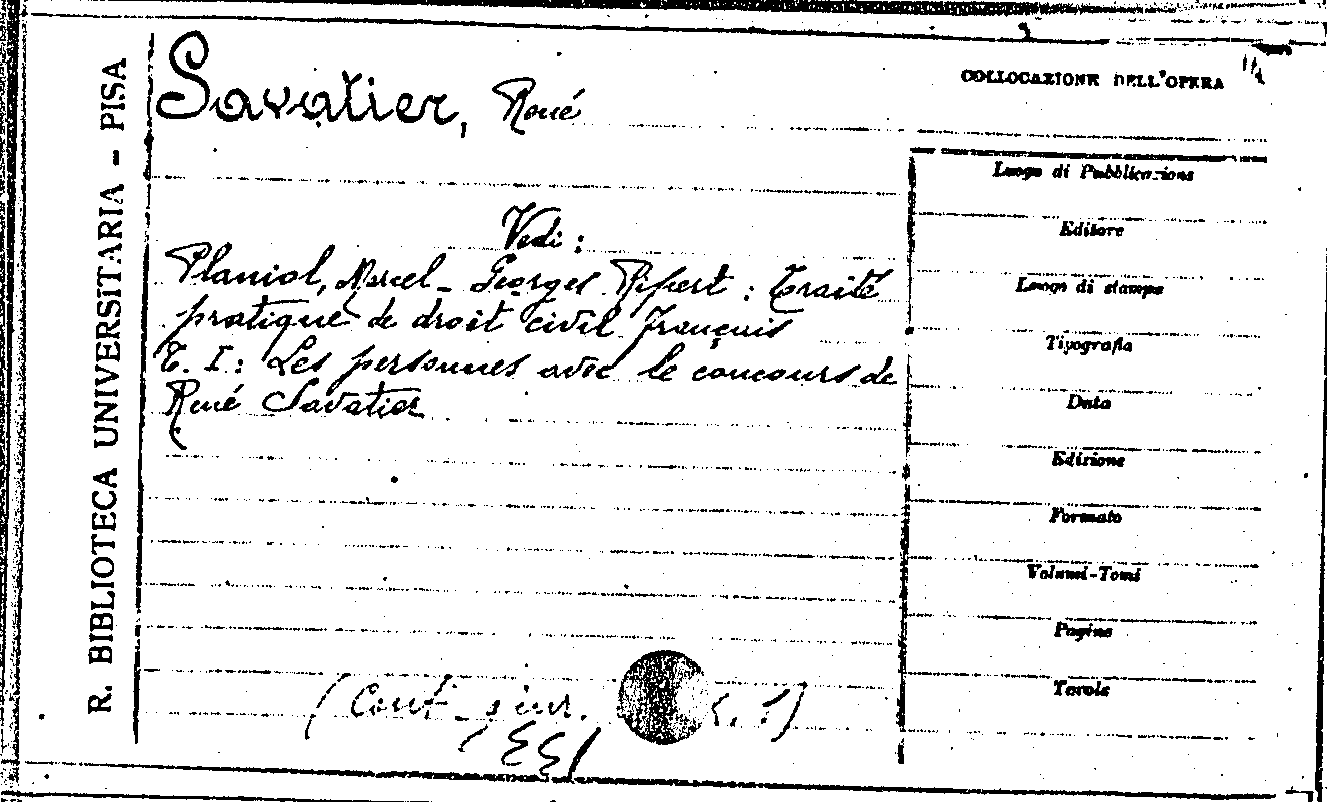 R. BIBLIOTECA UNIVERSITARIA - PISA
Savatier, René
COLLOCAZIONE DELL'OPERA
Vedi:
Planiol, Marcel - Georges Ripert : Traité
pratique de droit civil français
T. I: Les personnes avec le concours de
René Savatier
Luogo di Pubblicazione
Editore
Luogo di stampa
Tipografia
Data
Edizione
Formato
Volumi-Tomi
Pagine
Tavole